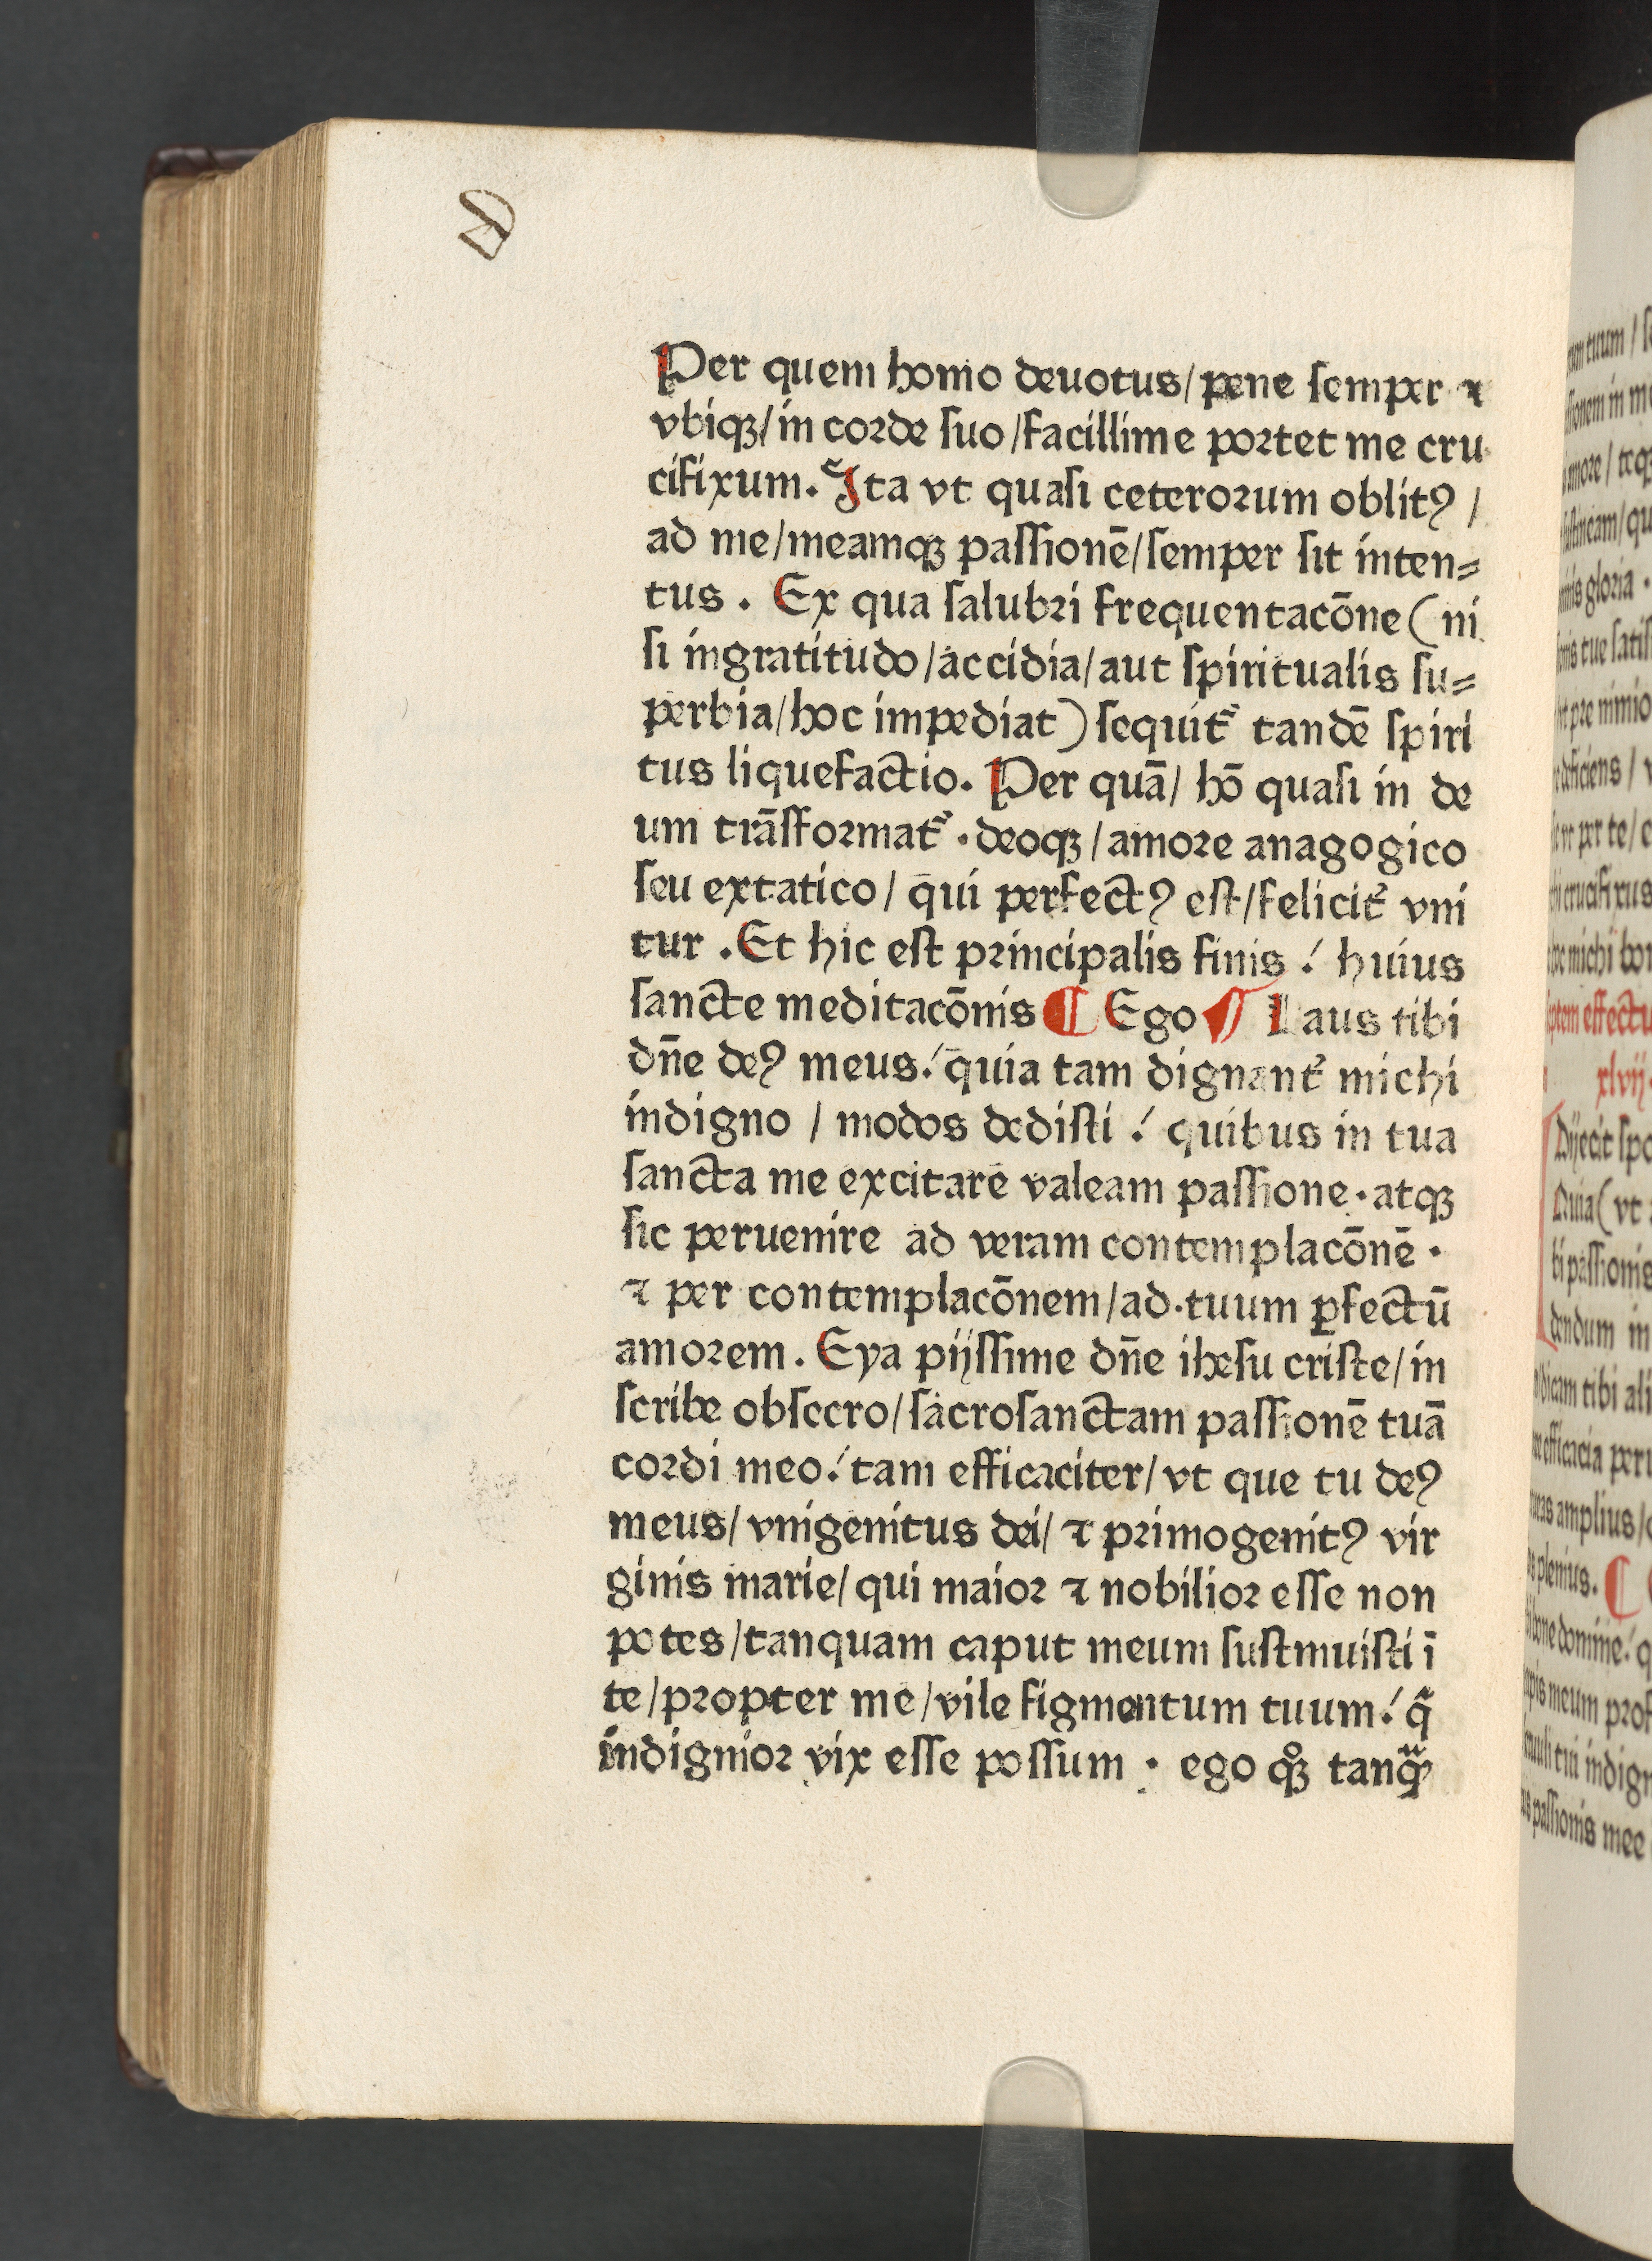 Per quem homo deuotus/ pene semper ⁊
vbiqꝫ/ in corde suo /facillime portet me cru
cifixum. Ita vt quasi ceterorum oblitꝰ /
ad me/meamqꝫ passionē/semper sit inten⸗
tus . Ex qua salubri frequentacōne ( ni
si ingratitudo/accidia/aut spiritualis su⸗
perbia/hoc impediat) sequit᷑ tandē spiri
tus liquefactio. Per quā/ hō quasi in de
um trāsformat᷑ . deoqꝫ/amore anagogico
seu extatico/ qui perfectꝰ est/felicit᷑ vni
tur . Et hic est principalis finis ! huius
sancte meditacōnis ¶ Ego ¶ Laus tibi
dn̄e deꝰ meus! quia tam dignant᷑ michi
indigno / modos dedisti ! quibus in tua
sancta me excitare valeam passione. atqꝫ
sic peruenire ad veram contemplacōnē .
⁊ per contemplacōnem/ad tuum ꝑfectū
amorem . Eya pijssime dn̄e ihesu criste/in
scribe obsecro/sacrosanctam passionē tuā
cordi meo! tam efficaciter/ vt que tu deꝰ
meus/ vnigenitus dei/ ⁊ primogenitꝰ vir
ginis marie/ qui maior ⁊ nobilior esse non
potes/tanquam caput meum sustinuisti ī
te/propter me/vile figmentum tuum! q̄
indignior vix esse possum . ego qͦꝫ tanqᷓꝫ